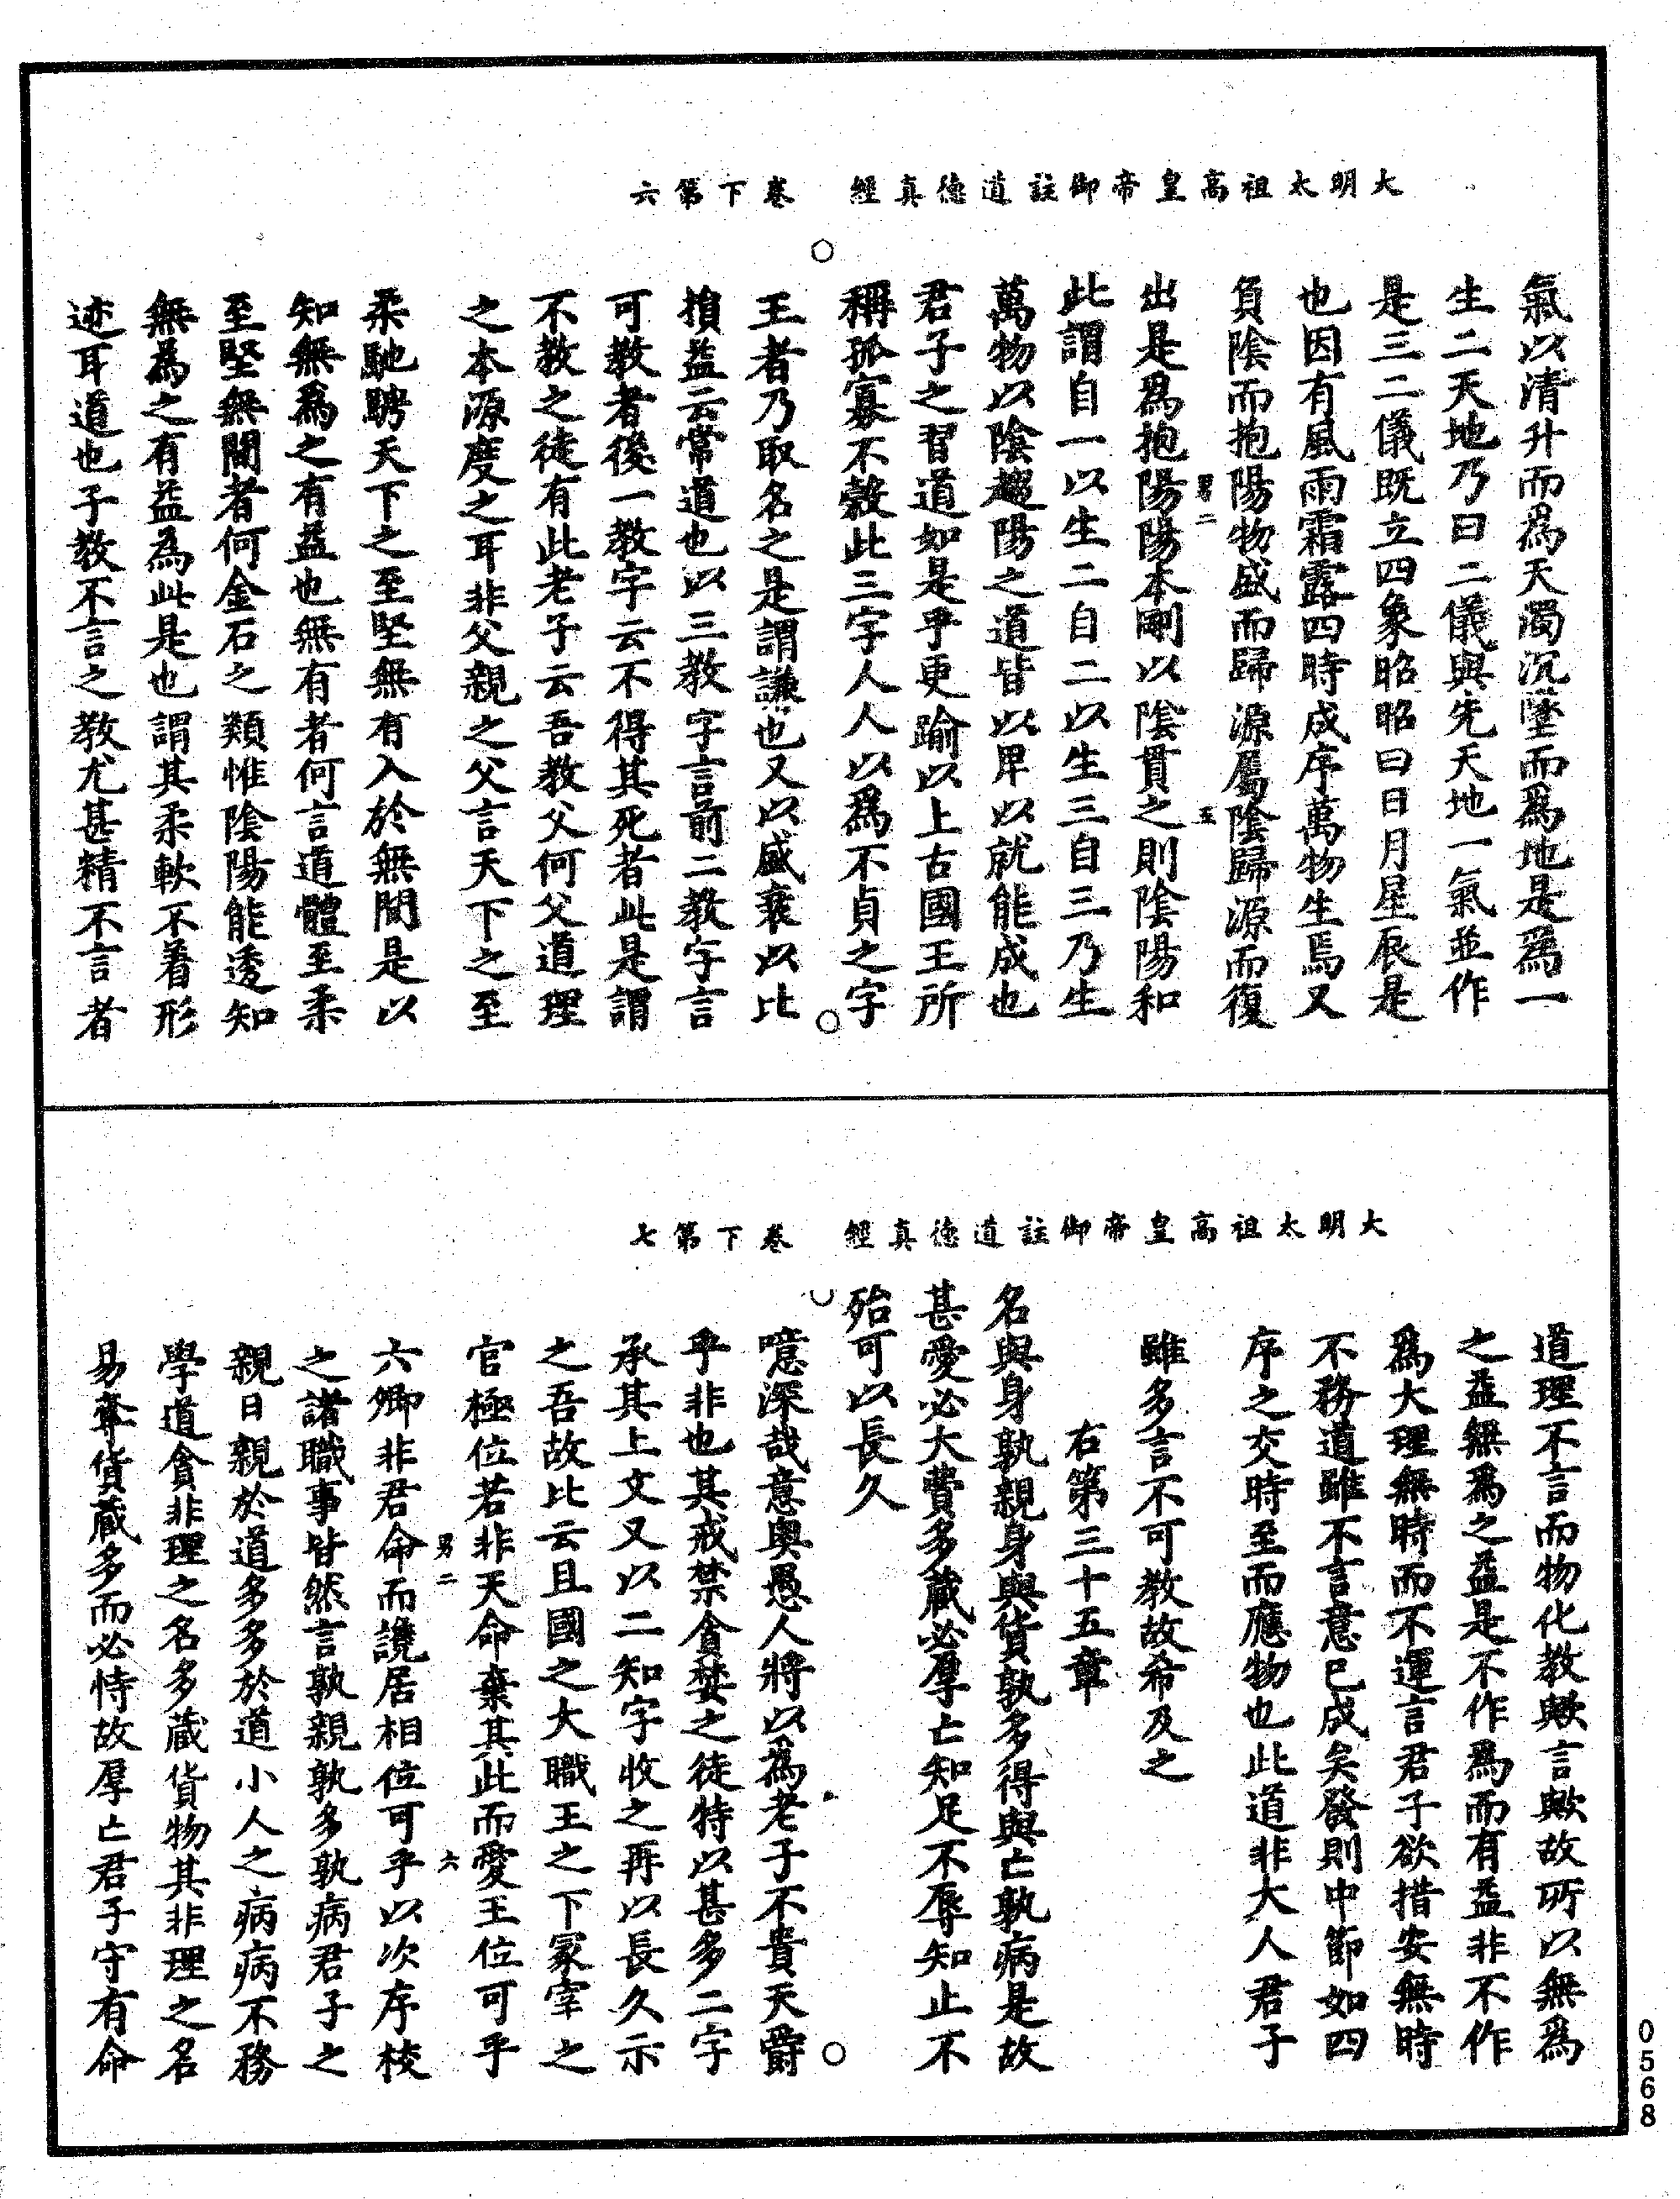 大明太祖高皇帝御註道德真經　卷下第六
氣以清升而爲天濁沉墜而爲地是爲一
生二天地乃曰二儀與先天地一氣並作
是三二儀既立四象昭昭曰日月星辰是
也因有風雨霜露四時成序萬物生焉又
負陰而抱陽物盛而歸源屬陰歸源而復
出是爲抱陽陽本剛以陰貫之則陰陽和
此謂自一以生二自二以生三自三乃生
萬物以陰趨陽之道皆以卑以就能成也
君子之習道如是乎更踰以上古國王所
稱孤寡不穀此三字人人以爲不貞之字
王者乃取名之是謂謙也又以盛衰以比
損益云常道也以三教字言前二教字言
可教者後一教字云不得其死者此是謂
不教之徒有此老子云吾教父何父道理
之本源度之耳非父親之父言天下之至
柔馳騁天下之至堅無有入於無間是以
知無爲之有益也無有者何言道體至柔
至堅無間者何金石之類惟陰陽能透知
無為之有益為此是也謂其柔軟不着形
迹耳道也子教不言之教尤甚精不言者
大明太祖高皇帝御註道德真經　卷下第七
道理不言而物化教歟言歟故所以無爲
之益無爲之益是不作爲而有益非不作
爲大理無時而不運言君子欲措安無時
不務道雖不言意已成矣發則中節如四
序之交時至而應物也此道非大人君子
雖多言不可教故希及之
右第三十五章
名與身孰親身與貨孰多得與亡孰病是故
甚愛必大費多藏必厚亡知足不辱知止不
殆可以長久
噫深哉意奧愚人將以為老子不貴天爵
乎非也其戒禁貪婪之徒特以甚多二字
承其上文又以二知字收之再以長久示
之吾故比云且國之大職王之下冢宰之
官極位若非天命棄其此而愛王位可乎
六卿非君命而讒居相位可乎以次序棱
之諸職事皆然言孰親孰多孰病君子之
親日親於道多多於道小人之病病不務
學道貪非理之名多藏貨物其非理之名
易奪貨藏多而必恃故厚亡君子守有命
男二
六
0568